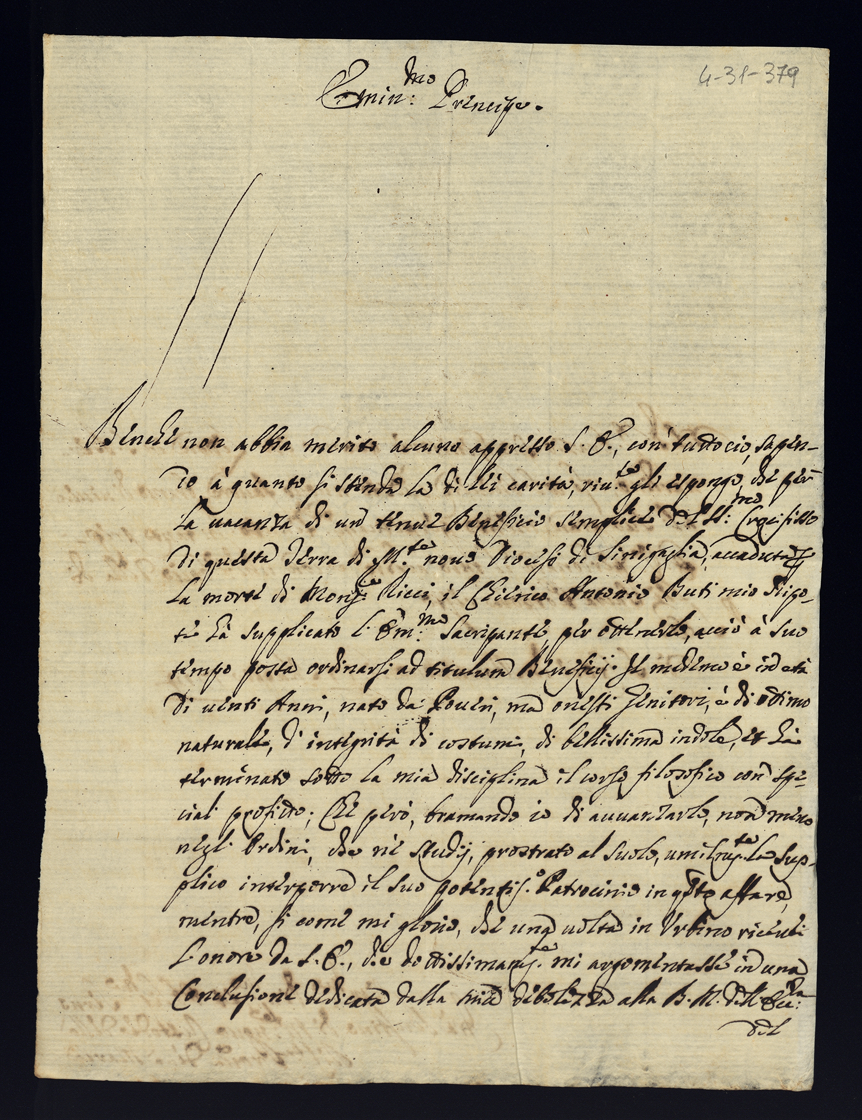 4-31-379
Emin:mo Principe.
Benche non abbia merito alcuno appresso S. E., con tutto ciò, sapen-
do à quanto si stenda la di lei carità, riv.te gli espongo, che per
la vacanza di un tenue Beneficio semplice del SS:mo Crocifisso
di questa Terra di M.te novo Diocesi di Sinigaglia, accaduta p
la morte di Monsr Ricci, il Chierico Antonio Buti mio Nipo-
te hà supplicato l'Em:mo Sacripante per ottenerlo, acciò à suo
tempo possa ordinarsi ad titulum Beneficij. Il medemo è in età
di venti Anni, nato da Poveri, mà onesti Genitori, è di ottimo
naturale, d'integrità di costumi, di bellissima indole, et hà
terminato sotto la mia disciplina il corso filosofico con spe-
cial profitto; Che però, bramando io di avvanzarlo, non meno
negl'Ordini, che nè Studij, prostrato al suolo, umilmte la sup-
plico interporre il suo potentis.o Patrocinio in qsto affare,
mentre, si come mi glorio, che una volta in Urbino ricevei
l'onore da S. E., che dottissimamte mi argomentasse in una
Conclusione dedicata dalla mia debolezza alla B. M. dell'
del